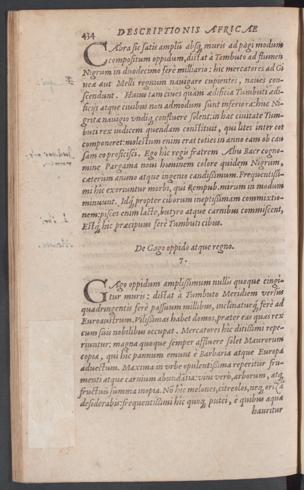 434 DESCRIPTIONIS AFRICAE
CAbra sic satis amplū absq; muris ad pagi modum
compositum oppidum, distat à Tumbuto ad flumen
Nigrum in duodecimo ferè milliario: hic mercatores ad Gi
nea aut Melli regnum nauigare cupientes, naues con-
scendunt. Huius tam ciues quàm ædificia Tumbuti æd-
ficijs atque ciuibus non admodum sunt inferiora: huc Ni-
gritæ nauigio vndiq; confluere solent: in hac ciuitate Tum-
buti rex iudicem quendam constituit, qui lites inter eos
componeret: molestum enim erat toties in anno eam ob cau
sam eo proficisci. Ego hîc regis fratrem Abu Bacr cogno-
mine Pargama noui hominem colore quidem Nigrum,
cæterùm animo atque ingenio candidissimum. Frequentissi-
mi hîc exoriuntur morbi, qui Rempub. mirum in modum
minuunt. Idq; propter ciborum ineptissimam commixtio-
nem; pisces enim lacte, butyro atque carnibus commiscent,
Estq; hic præcipuus ferè Tumbuti cibus.
De Gago oppido atque regno.
7.
GAgo oppidum amplissimum nullis quoque cingi-
tur muris: distat à Tumbuto Meridiem versus
quadringentis ferè passuum millibus, inclinaturq; ferè ad
Euroaustrum. Vilissimas habet domos, præter eas quas rex
cum suis nobilibus occupat. Mercatores hîc ditissimi repe-
riuntur: magna quoque semper affluere solet Maurorum
copia, qui hîc pannum emunt è Barbaria atque Europa
aduectum. Maxima in vrbe opulentissima reperitur fru-
menti atque carnium abundātia: vini verò, arborum, atq;
fructuū summa inopia. No hîc melones, citreolos, neq; oriza
desiderabis: frequentissimi hîc quoq; putei, è quibus aqua
hauritur